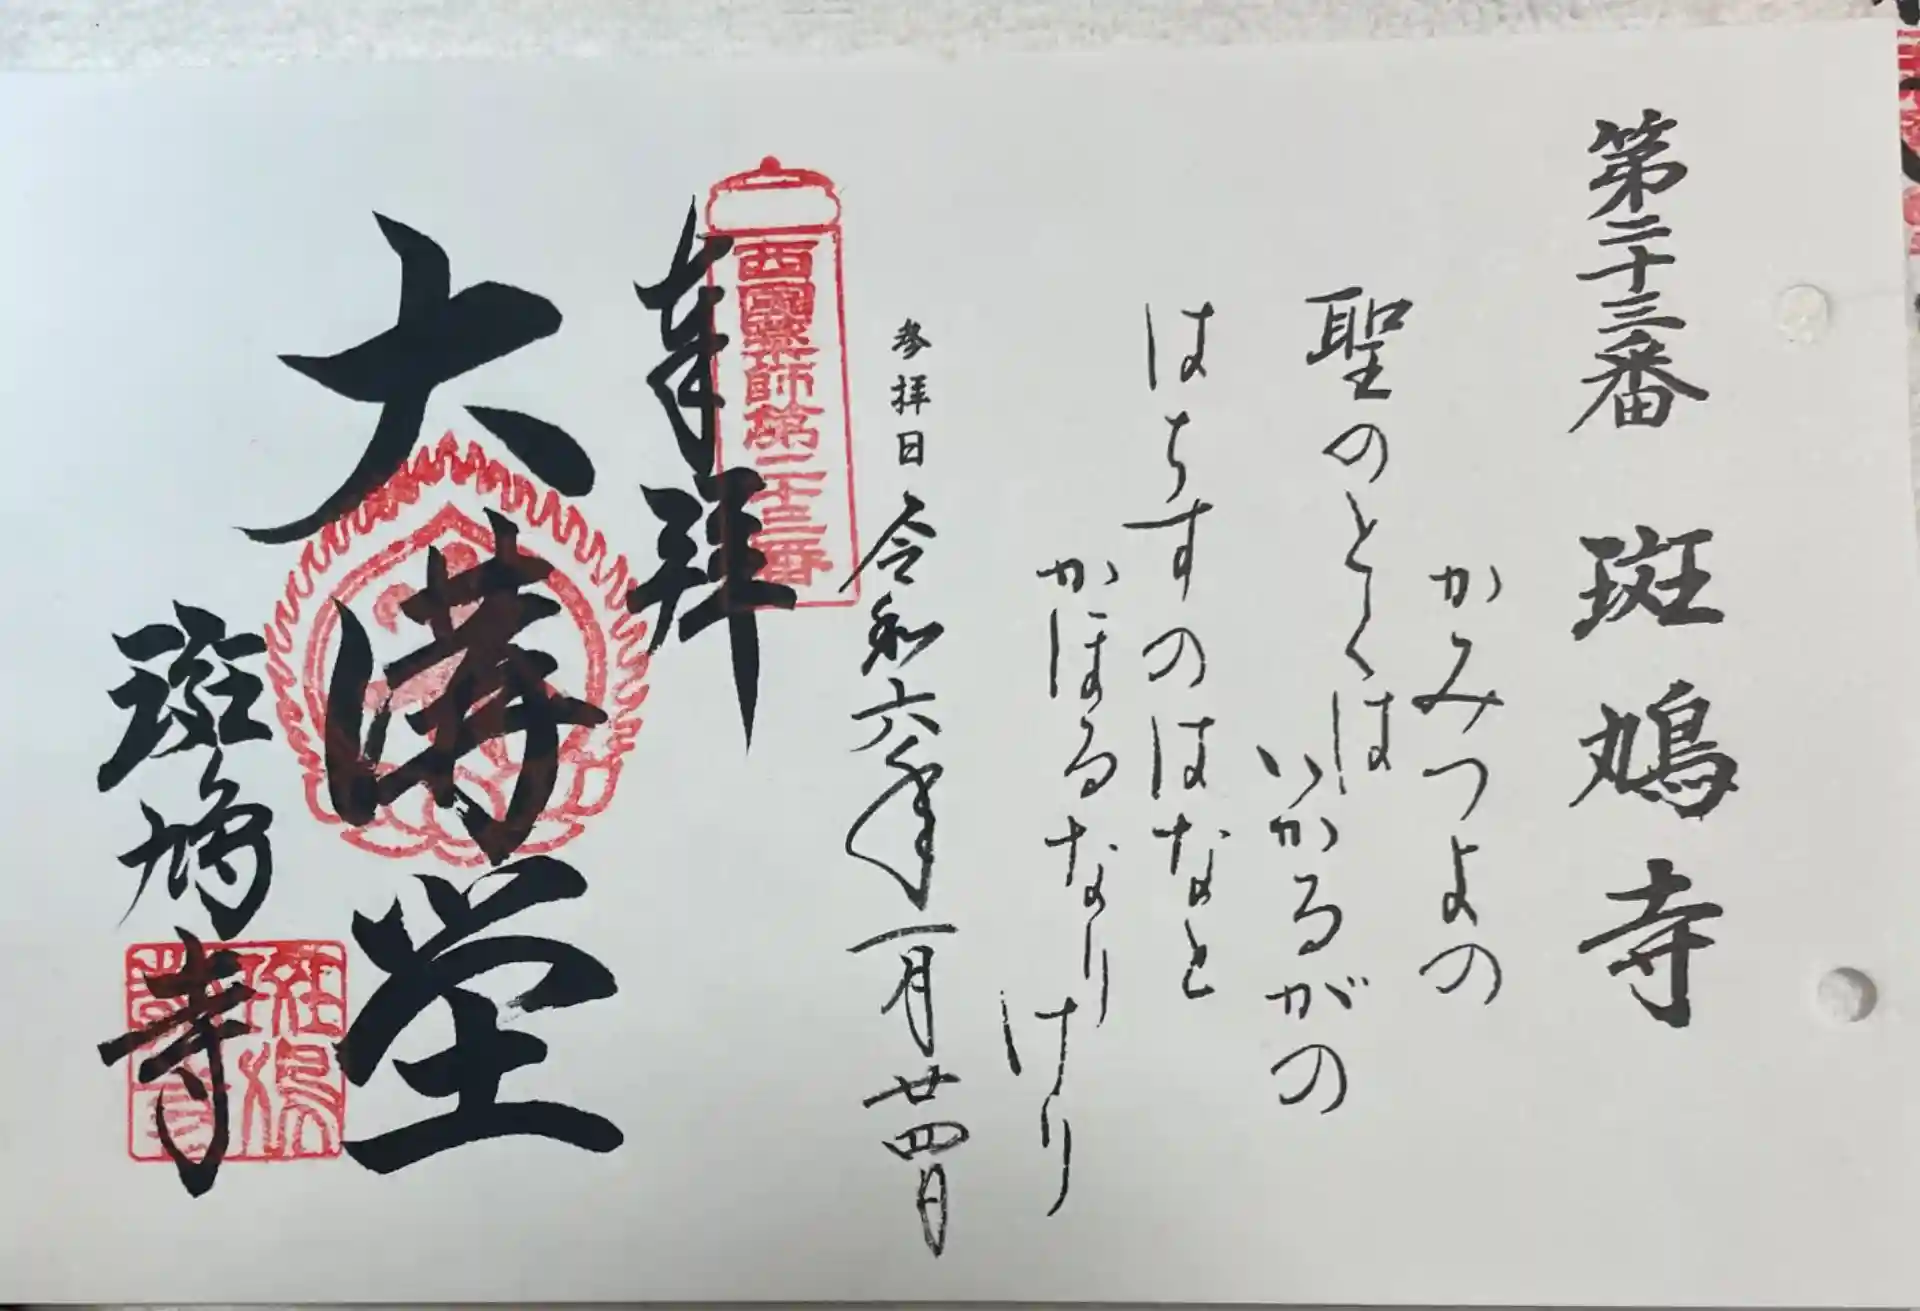 第二十三番 斑鳩寺
かみつよの
聖のとくは
いかるがの
はちすのはなと
かほるなり
けり
参拝日 令和六年一月廿四日
西國薬師第二十三番
奉拝
大講堂
斑鳩寺